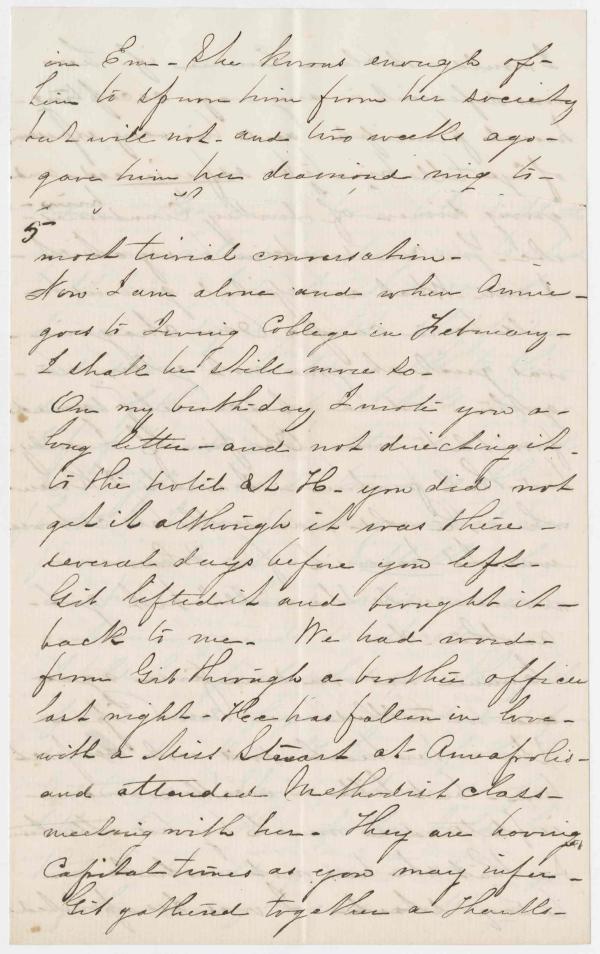 in Em - She knows enough of -
him to spurn him from her society
but will not - and two weeks ago -
gave him her diamond ring to -
5
most trivial conversation -
Now I am alone and when Annie -
goes to Irving College in February -
I shall be still more so -
On my birth-day I wrote you a -
long letter - and not directing it -
to the hotel at H - you did not
get it although it was there -
several days before you left -
Gib lifted it and brought it -
back to me - We had word -
from Gib through a brother officer
last night - Hee has fallen in love -
with a Miss Steuart at Annapolis -
and attended Methodist class -
meeting with her - They are having
Capital times as you may infer -
Gib gathered together a Thanks -